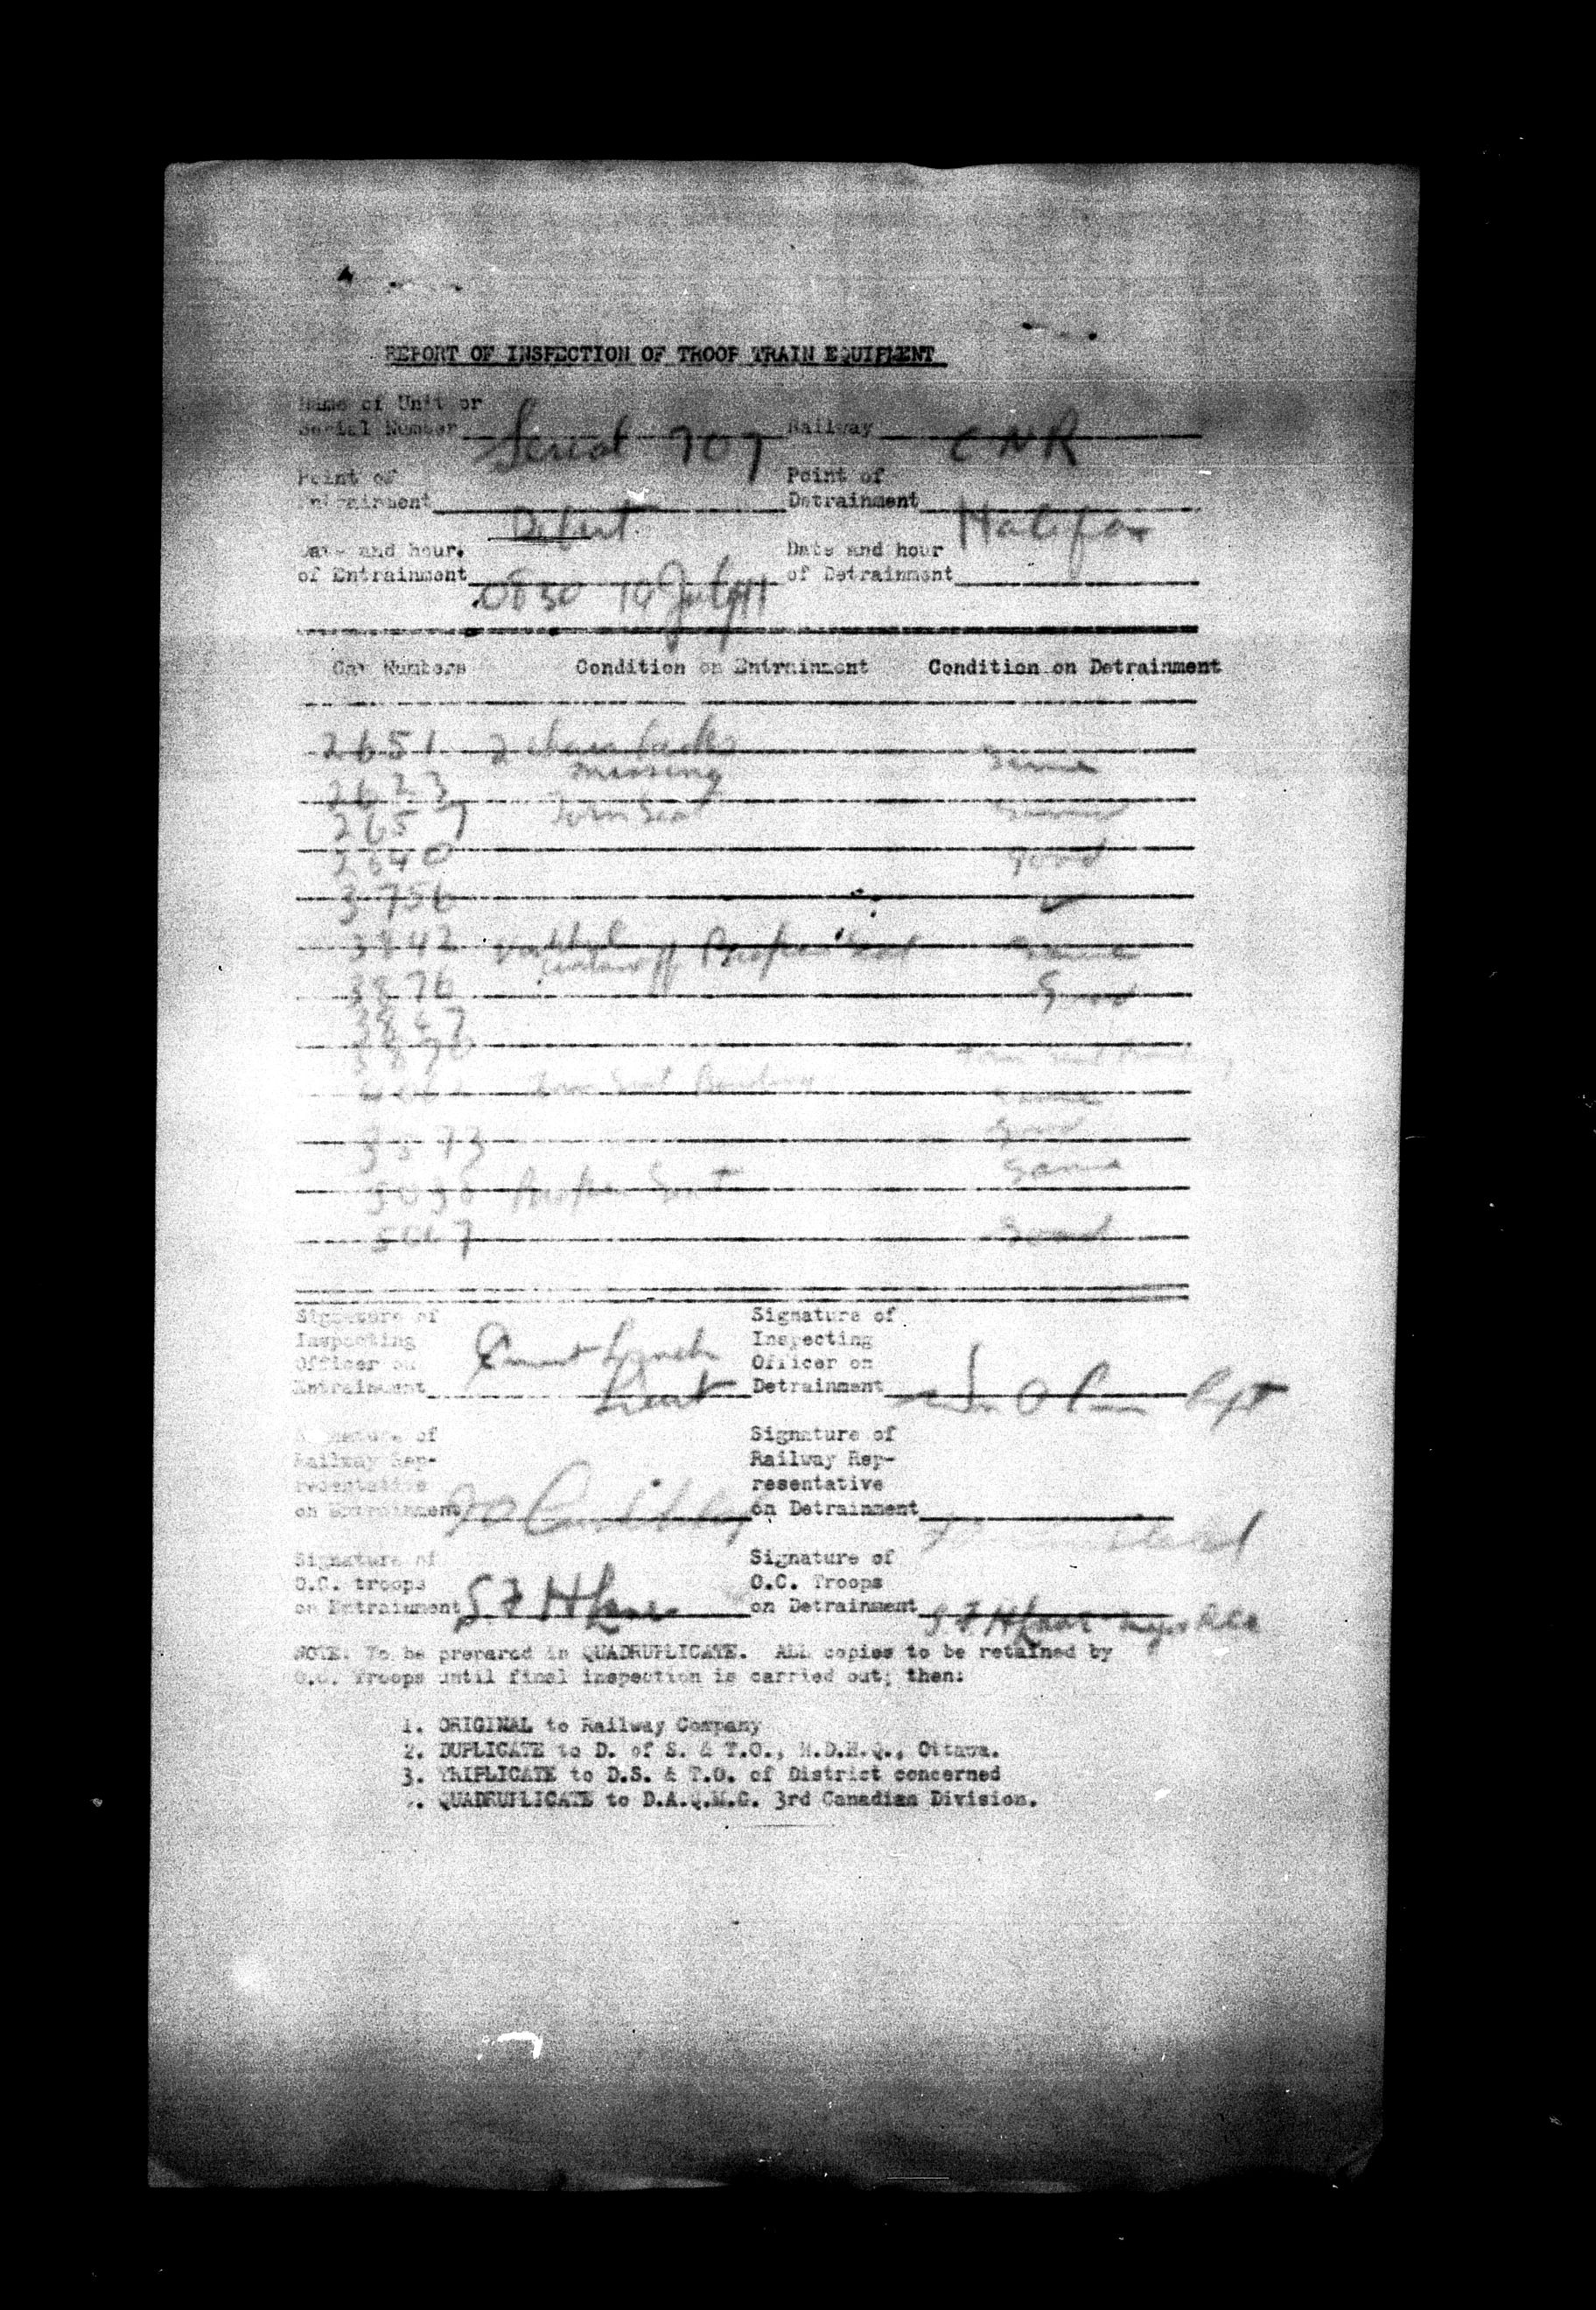 REPORT OF INSPECTION OF TROOP TRAIN EQUIPMENT
Name of Unit or
Serial Number Serial 707 Railway CNR
Point of Point of
Entrainment Debert Detrainment Halifax
Date and hour. Date and hour
of Entrainment 0830 10 July 41 of Detrainment
Car Numbers Condition on Entrainment Condition on Detrainment
2651 2 chair backs Same
missing
2623
2657 Torn Seat Same
2540 good
3756 ✓
3842 off Broken Seat Same
3876 Good
3867
3870 Torn Seat
Torn Seat Same
3573 Good
5036 Broken Seat Same
5067 Good
Signature of Signature of
Inspecting Inspecting
Officer on Lynch Officer on
Entrainment Lieut Detrainment Capt
Signature of Signature of
Railway Rep- Railway Rep-
resentative resentative
on Entrainment on Detrainment
Signature of Signature of
O.C. troops O.C. Troops
on Entrainment S F H Lane on Detrainment S F H Lane Major RCA
NOTE: To be prepared in QUADRUPLICATE. ALL copies to be retained by
O.C. Troops until final inspection is carried out; then:
1. ORIGINAL to Railway Company
2. DUPLICATE to D. of S. & T.O., N.D.H.Q., Ottawa.
3. TRIPLICATE to D.S. & T.O. of District concerned
. QUADRUPLICATE to D.A.Q.M.G. 3rd Canadian Division.